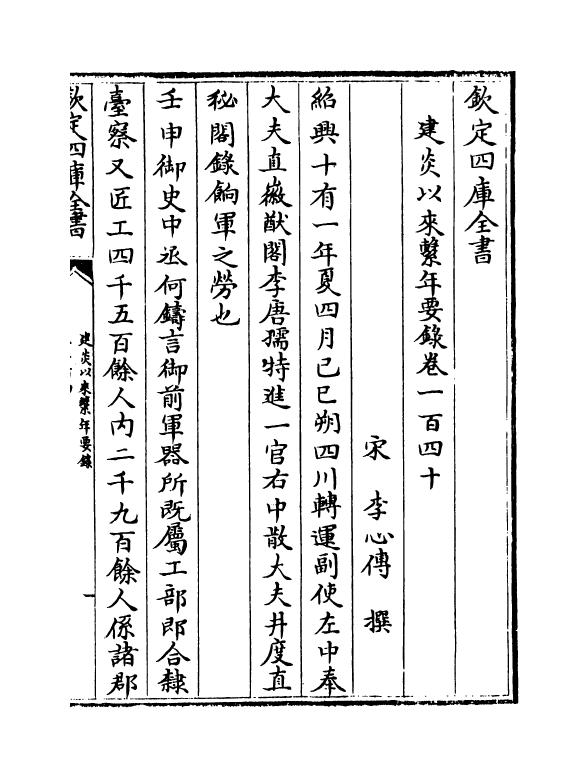 欽定四庫全書
建炎以來繫年要錄卷一百四十
宋 李心傳 撰
紹興十有一年夏四月己巳朔四川轉運副使左中奉
大夫直徽猷閣李唐孺特進一官右中散大夫井度直
秘閣錄餉軍之勞也
壬申御史中丞何鑄言御前軍器所既屬工部即合隸
臺察又匠工四千五百餘人內二千九百餘人係諸郡
欽定四庫全書
建炎以來繫年要錄
一